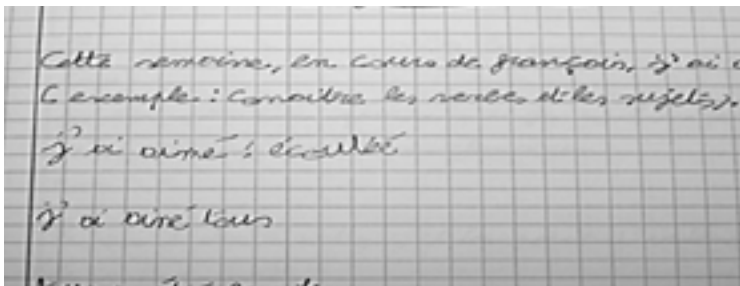 Cette semaine, en cours de français, j'ai
(exemple : Connaitre les verbes et les sujets).
j'ai aimé : écoulté
j'ai aimé tous